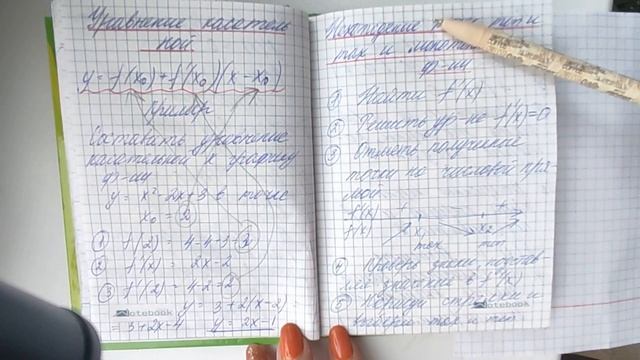 Уравнение касатель
ной
y = f(x₀) + f'(x₀)(x - x₀)
Пример
Составить уравнение
касательной к графику
ф-ии
y = x² - 2x + 3 в точке
x₀ = 2
① f(2) = 4 - 4 + 3 = 3
② f'(x) = 2x - 2
③ f'(2) = 4 - 2 = 2
y = 3 + 2(x - 2) =
= 3 + 2x - 4 y = 2x - 1
notebook
Нахождение
max и
ф-ии
① Найти f'(x)
② Решить ур-ие f'(x) = 0
③ Отметь полученные
точки на числовой пря
мой
f'(x) + - +
f(x) x₁ x₂
max min
④ Проверь знаки, подстав
значения в f'(x)
⑤ и
notebook
выбери max и min